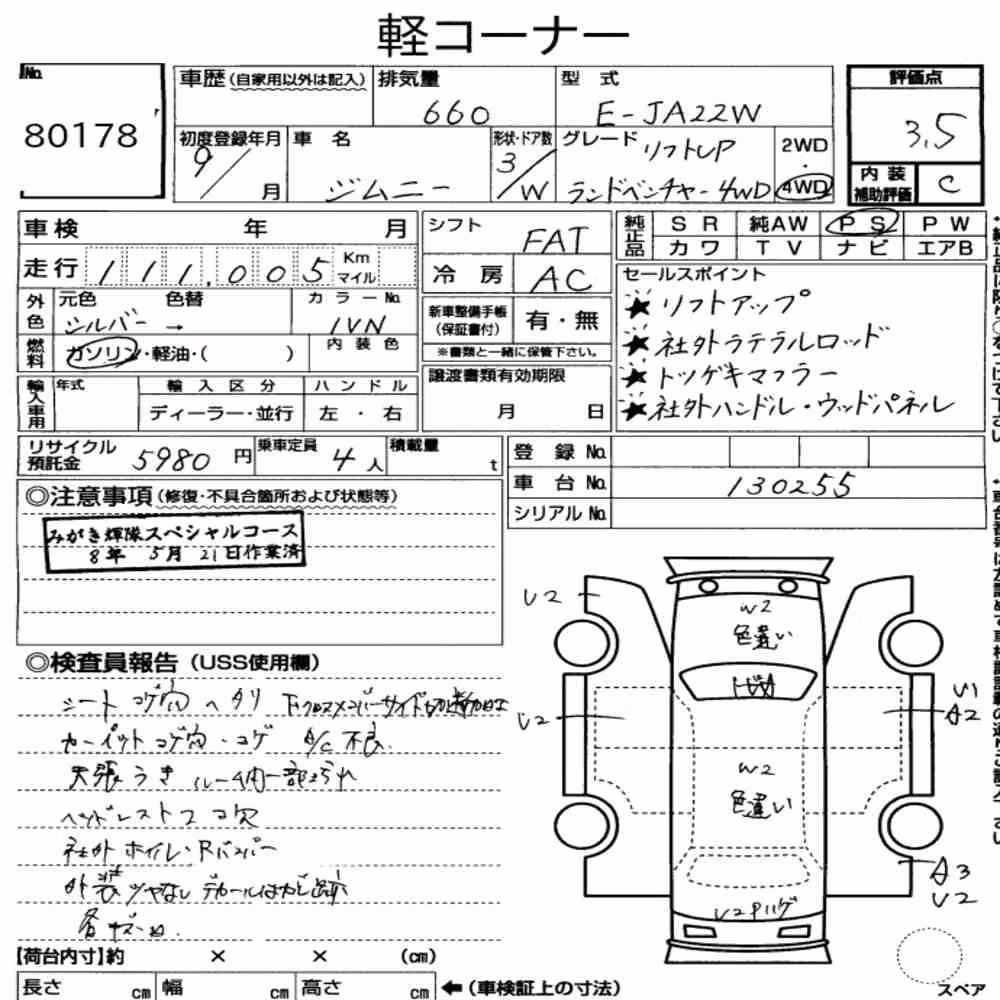 軽コーナー
No.
80178
車歴(自家用以外は記入)
排気量
660
型 式
E-JA22W
評価点
3.5
初度登録年月
9/
月
車 名
ジムニー
形状・ドア数
3/W
グレード
リフトUP
ランドベンチャー4WD
2WD
・
4WD
内装
補助評価
C
車検 年 月
シフト
FAT
純正品
SR 純AW PS PW
カワ TV ナビ エアB
走行 111,005 Km マイル
冷 房
AC
セールスポイント
★リフトアップ
★社外ラテラルロッド
★トツゲキマフラー
★社外ハンドル・ウッドパネル
外色
元色 色替
シルバー →
カラーNo.
1VN
新車整備手帳
(保証書付)
有・無
※書類と一緒に保管下さい。
燃料
ガソリン・軽油・( )
内装色
輸入車用
年式
輸入区分
ディーラー・並行
ハンドル
左 ・ 右
譲渡書類有効期限
月 日
リサイクル
預託金
5980 円
乗車定員
4人
積載量
t
登 録 No.
車 台 No.
130255
シリアル No.
◎注意事項(修復・不具合箇所および状態等)
みがき輝隊スペシャルコース
8年 5月 21日作業済
◎検査員報告(USS使用欄)
シート コゲ穴 ヘタリ 下クロスメンバーサイド切断加工
カーペットコゲ穴・コゲ A/C不良
天張うき ルーム内一部よごれ
ヘッドレストコゲ穴
社外ホイル・Rバンパー
外装ツヤなし デカールはがし跡
各キズ
U2
W2
色違い
U2
U1
A2
W2
色違い
A3
U2
U2Pハゲ
スペア
【荷台内寸】約 × × (cm)
長さ cm 幅 cm 高さ cm
←(車検証上の寸法)